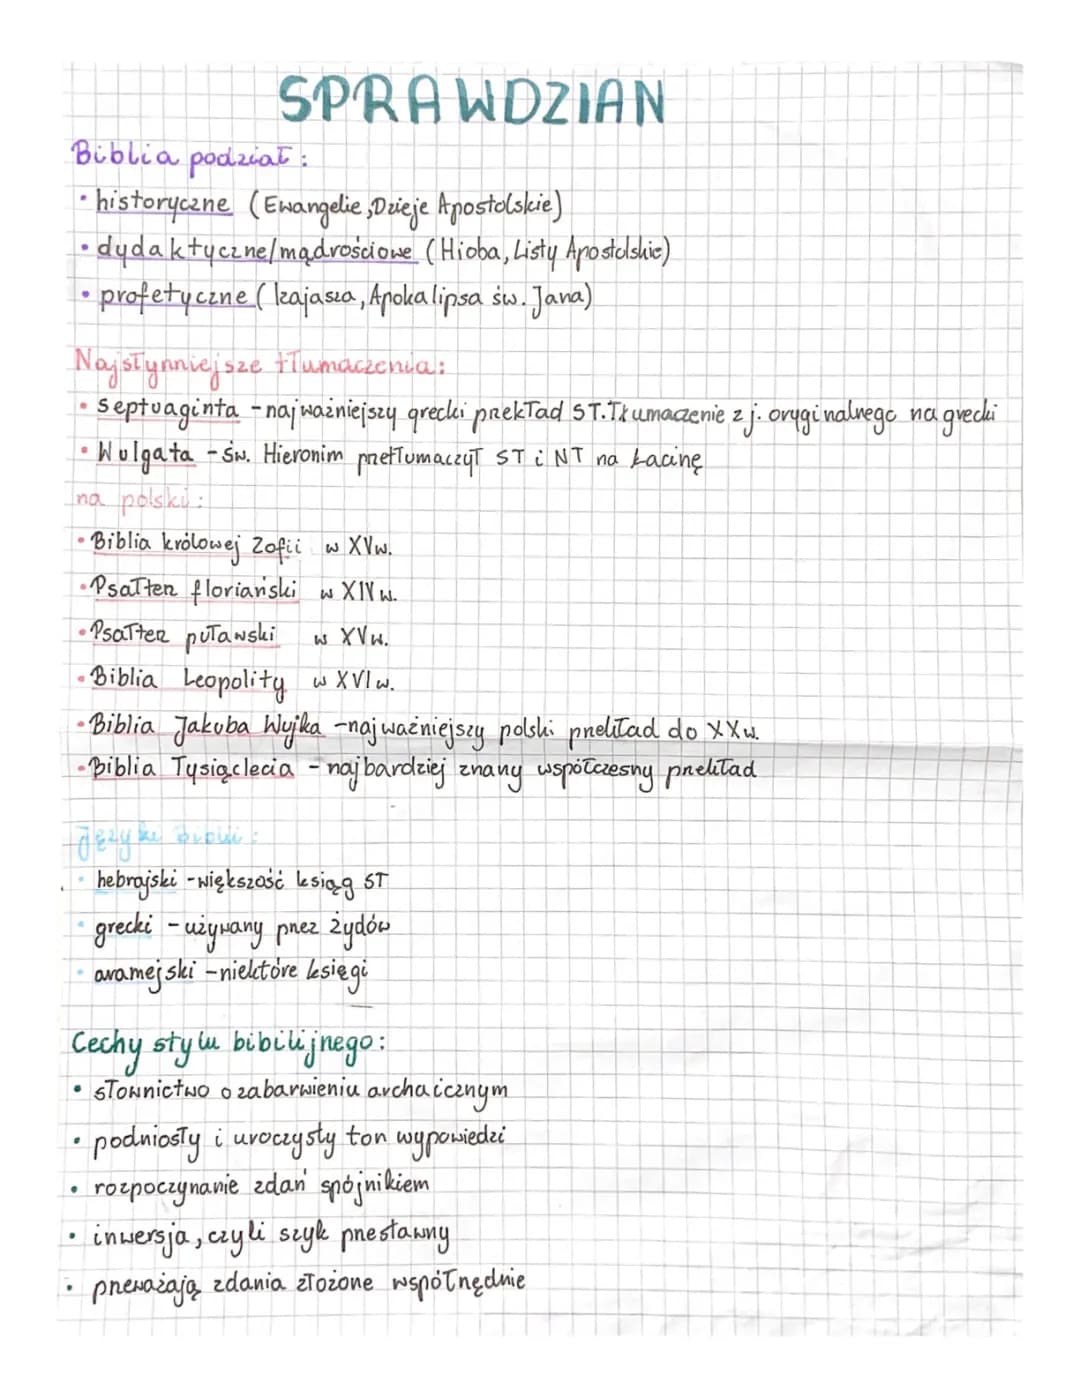 SPRAWDZIAN
Biblia podział:
• historyczne (Ewangelie, Dzieje Apostolskie)
• dydaktyczne/mądrościowe (Hioba, Listy Apostolskie)
• profetyczne (Izajasza, Apokalipsa św. Jana)
Najsłynniejsze tłumaczenia:
• Septuaginta - najważniejszy grecki przekład ST. Tłumaczenie z j. oryginalnego na grecki
• Wulgata - św. Hieronim przetłumaczył ST i NT na Łacinę
na polski:
• Biblia królowej Zofii w XV w.
• Psałterz floriański w XIV w.
• Psałterz puławski w XV w.
• Biblia Leopolity w XVI w.
• Biblia Jakuba Wujka - najważniejszy polski przekład do XX w.
• Biblia Tysiąclecia - najbardziej znany współczesny przekład
Języki Biblii:
• hebrajski - większość ksiąg ST
• grecki - używany przez żydów
• aramejski - niektóre księgi
Cechy stylu bibilijnego:
• słownictwo o zabarwieniu archaicznym
• podniosły i uroczysty ton wypowiedzi
• rozpoczynanie zdań spójnikiem
• inwersja, czyli szyk przestawny
• przeważają zdania złożone współrzędnie